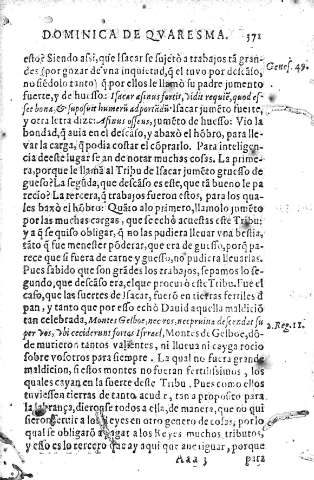 DOMINICA DE QVARESMA. 371
esto? Siendo assi, que Isacar se sujetò a trabajos tã gran-
des (por gozar de vna inquietud, q̃ el tuvo por descãso,
no siẽdolo tanto) q̃ por ellos le llamò su padre jumento
fuerte, y de huesso: Isacar asinus fortis, vidit requiẽ, quod es-
set bona, & suposuit humerũ ad portãdũ Isacar jumẽto fuerte,
y otra letra dize: Asinus osseus, jumẽto de huesso: Vio la
bondad, q̃ auia en el descãso, y abaxò el hõbro, para lle-
var la carga, q̃ podia costar el cõprarlo. Para inteligen-
cia deeste lugar se an de norar muchas cosas. La prime-
ra, porque le llamã al Tribu de Isacar jumẽto gruesso de
gueso? La segũda, que descãso es este, que tã bueno le pa
recio? La tercera, q̃ trabajos fueron estos, para los qua-
les baxò el hõbro: Quãto alo primero, llamolo jumẽto
por las muchas cargas, que se echò acuestas este Tribu;
y a q̃ se quiso obligar, q̃ no las pudiera lleuar vna bestia,
tãto q̃ fue menester põderar, que era de guesso, porq̃ pa-
rece que si fuera de carne y guesso, no pudiera lleuarlas.
Pues sabido que son grãdes los trabajos, sepamos lo se-
gundo, que descãso era, el que procurò este Tribu. Fue el
caso, que las suertes de Isacar, fuerõ en tierras fertiles d̃
pan, y tanto que por esso echò David aquella maldiciõ
tan celebrada, Montes Gelboe, nec ros, nec pruina descendat su
per vos, vbi ceciderunt fortes Israel, Montes de Gelboe, dõ-
de murieron tantos valientes, ni llueua ni cayga rocio
sobre vosotros para siempre. La qual no fuera grande
maldicion, si estos montes no fueran fertilissimos, los
quales cayan en la suerte deste Tribu. Pues como ellos
tuviessen tierras de tanto acude, tan a proposito para
la labrança, dieronse todos a ella, de manera, que no qui
sieron seruir a los Reyes en otro genero de cosas, por lo
qual se obligarõ a pagar a los Reyes muchos tributos,
y esso es lo tercero que ay aqui que aueriguar, porque
Aaa 3 para
Genes. 49.
2. Reg. 11.